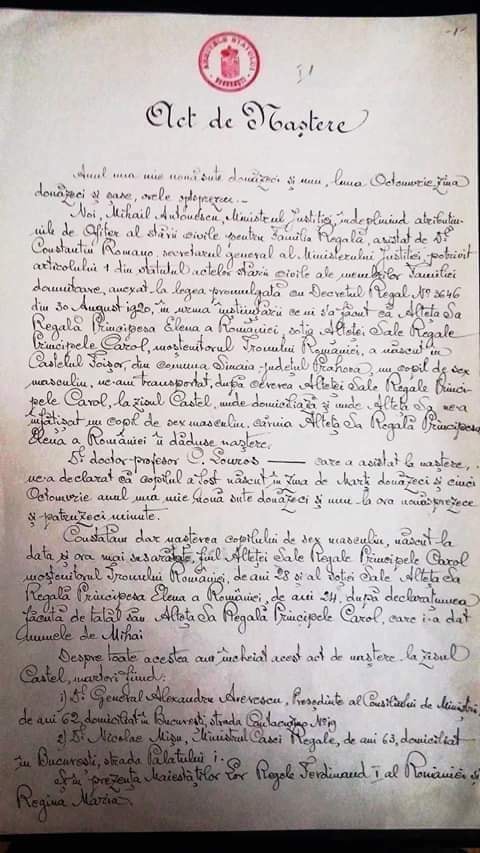 ARHIVELE STATULUI
BUCUREȘTI
Act de Naștere
Anul una mie nouă sute douăzeci și unu, luna Octomvrie ziua
douăzeci și șase, orele optsprezece.
Noi, Mihail Antonescu, Ministrul Justiției, îndeplinind atribu
nile de Ofițer al stării civile pentru Familia Regală, asistat de Dl
Constantin Romano, secretarul general al Ministerului Justiției potrivit
articolului 1 din statutul actelor stării civile ale membrilor Familiei
domnitoare, anexat la legea promulgată cu Decretul Regal No 3646
din 30 August 1920, în urma înștiințării ce ni s'a făcut că Alteța Sa
Regală Principesa Elena a României, soția Alteței Sale Regale
Principele Carol, moștenitorul Tronului României, a născut în
Castelul Foișor, din comuna Sinaia județul Prahova, un copil de sex
masculin, ne-am transportat, după cererea Alteței Sale Regale Princi-
pele Carol, la zisul Castel, unde domiciliază și unde Alteța Sa ne-a
înfățișat un copil de sex masculin, căruia Alteța Sa Regală Principesa
Elena a României îi dăduse naștere.
Dl doctor-profesor C. Louros — care a asistat la naștere,
ne-a declarat că copilul a fost născut în ziua de Marți douăzeci și cinci
Octomvrie anul una mie nouă sute douăzeci și unu la ora nouăsprezece
și patruzeci minute.
Constatăm dar nașterea copilului de sex masculin, născut la
data și ora mai sus arătate, fiul Alteței Sale Regale Principele Carol
moștenitorul Tronului României, de ani 28 și al soției Sale Alteța Sa
Regală Principesa Elena a României, de ani 24, după declarațiunea
făcută de tatăl său Alteța Sa Regală Principele Carol, care i-a dat
numele de Mihai
Despre toate acestea am încheiat acest act de naștere la zisul
Castel, martori fiind:
1) Dl General Alexandru Averescu, Președinte al Consiliului de Miniștri,
de ani 62, domiciliat în București, strada No 19
2) Dl Nicolae Mișu, Ministrul Casei Regale, de ani 63, domiciliat
în București, strada Palatului 1.
Și în prezența Maiestăților Lor Regele Ferdinand I al României și
Regina Maria.